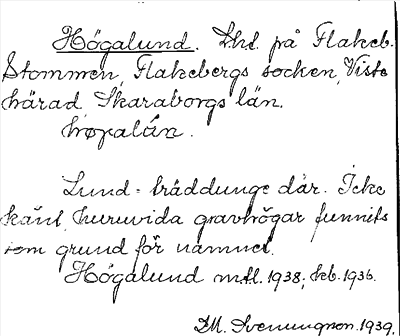 Högalund. Lht. på Flakeb.
Stommen, Flakebergs socken, Viste
härad. Skaraborgs län.
Lund = träddunge där. Icke
känt, huruvida gravhögar funnits
som grund för namnet.
Högalund mtl. 1938; Jeb. 1936.
M. Svenungson. 1939.